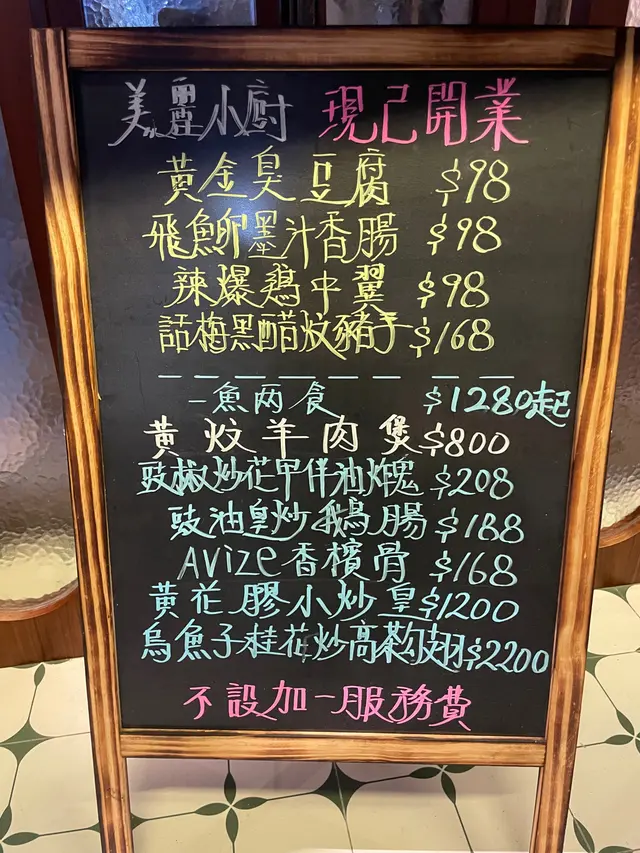 美靈小廚 現已開業
黃金臭豆腐 $98
飛魚卵墨汁香腸 $98
辣爆鷄中翼 $98
話梅黑醋炆豬手 $168
一魚两食 $1280起
黃炆羊肉煲 $800
豉椒炒花甲伴油炸鬼 $208
豉油皇炒鵝腸 $188
Avize香檳骨 $168
黃花膠小炒皇 $1200
烏魚子桂花炒高粱勾翅 $2200
不設加一服務費